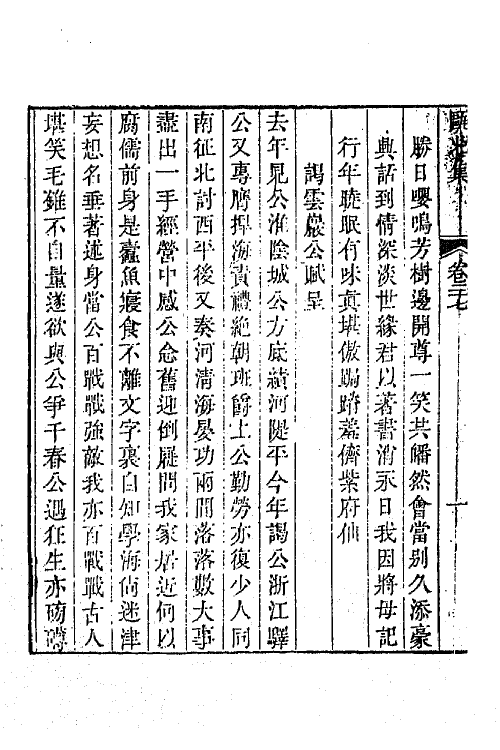 甌北集
卷三七
勝日嚶鳴芳樹邊開尊一笑共皤然會當別久添豪
興話到情深淡世緣君以著書消永日我因將母記
行年睫眠有味真堪傲跼蹐羞儕紫府仙
謁雲巖公賦呈
去年見公淮陰城公方底績河隄平今年謁公浙江驛
公又專膺捍海責禮絶朝班爵上公勤勞亦復少人同
南征北討西平後又奏河清海晏功兩間落落數大事
盡出一手經營中感公念舊迎倒屣問我家居近何以
腐儒前身是蠹魚寢食不離文字裏自知學海尙迷津
妄想名垂著述身當公百戰戰強敵我亦百戰戰古人
堪笑毛錐不自量遂欲與公爭千春公遇狂生亦磅礴